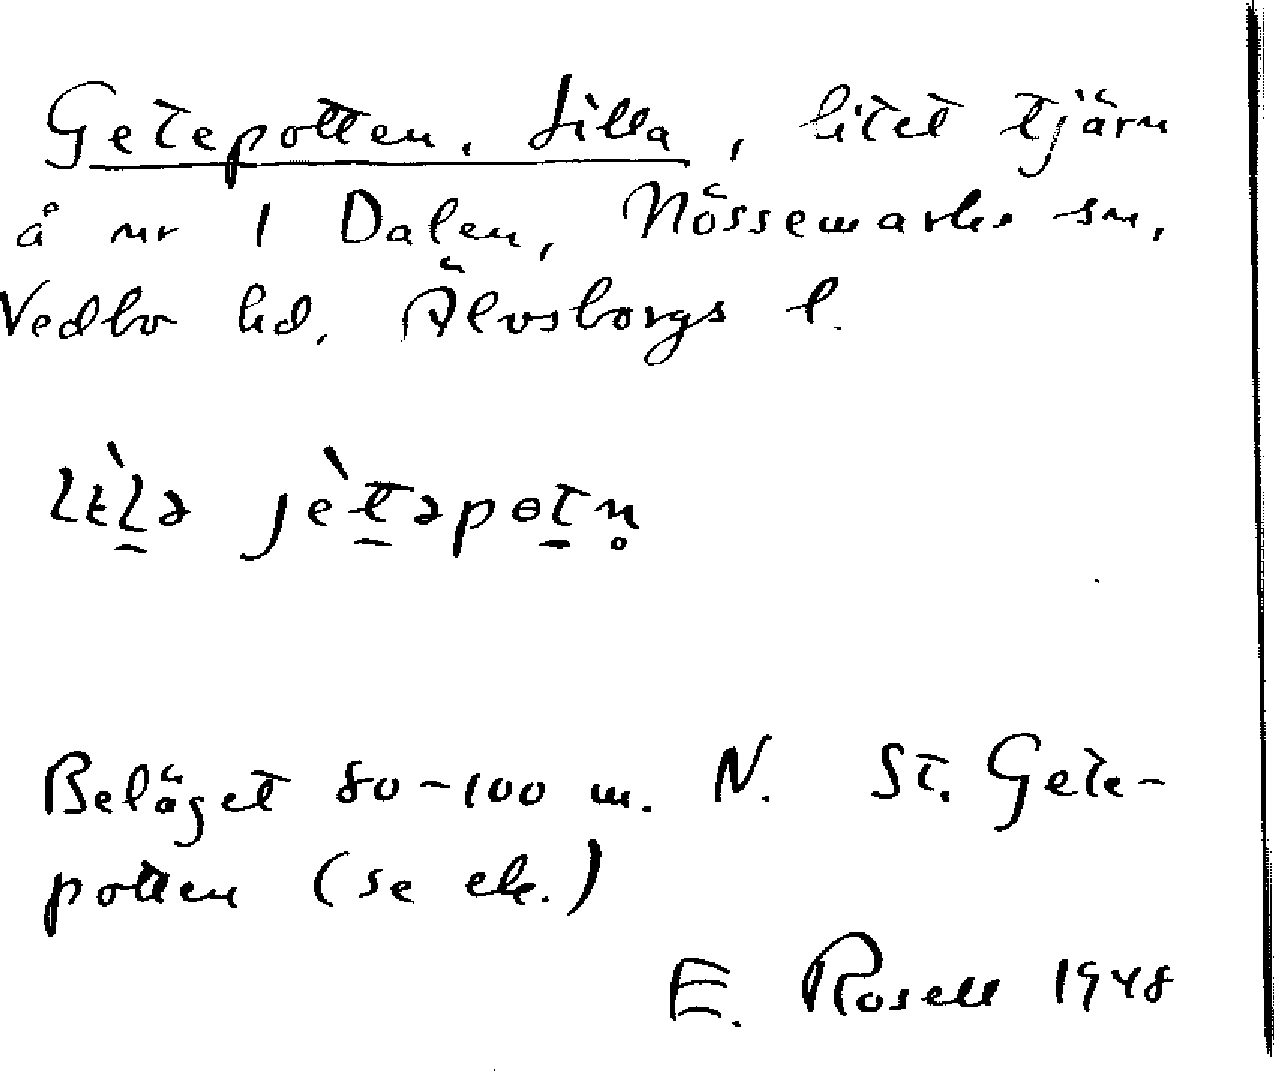 Getepotten, Lilla, litet tjärn
å nr 1 Dalen, Nössemarks sn,
Vedbo hd, Älvsborgs l.
lìla jètəpotn̥
Beläget 80-100 m. N. St. Gete-
potten (se ek.)
E. Rosell 1948